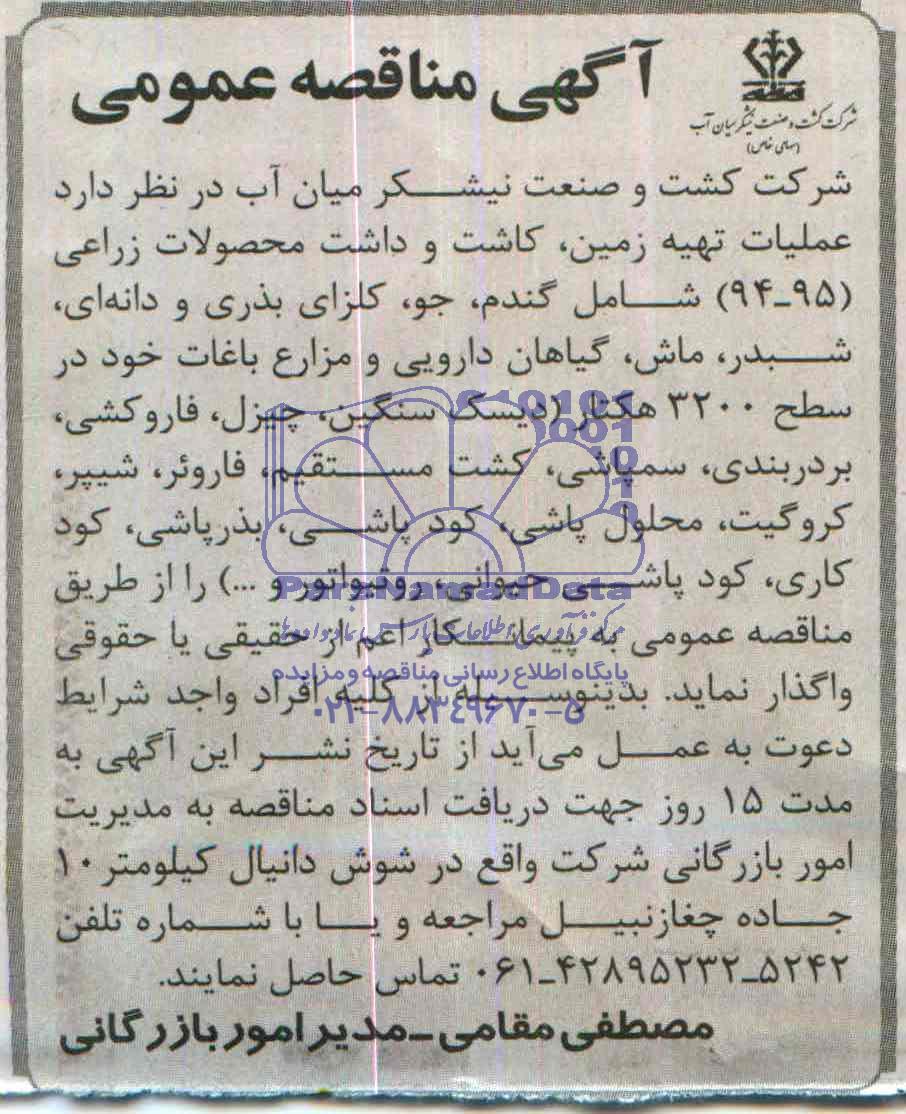 آگهی مناقصه عمومی
شرکت کشت و صنعت نیشکر میان آب
(سهامی خاص)
شرکت کشت و صنعت نیشکر میان آب در نظر دارد
عملیات تهیه زمین، کاشت و داشت محصولات زراعی
(۹۵-۹۴) شامل گندم، جو، کلزای بذری و دانه‌ای،
شبدر، ماش، گیاهان دارویی و مزارع باغات خود در
سطح ۳۲۰۰ هکتار (دیسک سنگین، چیزل، فاروکشی،
بردربندی، سمپاشی، کشت مستقیم، فاروئر، شیپر،
کروگیت، محلول پاشی، کود پاشی، بذرپاشی، کود
کاری، کود پاشی حیوانی، روتیواتور و ...) را از طریق
مناقصه عمومی به پیمانکار اعم از حقیقی یا حقوقی
واگذار نماید. بدینوسیله از کلیه افراد واجد شرایط
دعوت به عمل می‌آید از تاریخ نشر این آگهی به
مدت ۱۵ روز جهت دریافت اسناد مناقصه به مدیریت
امور بازرگانی شرکت واقع در شوش دانیال کیلومتر ۱۰
جاده چغازنبیل مراجعه و یا با شماره تلفن
۵۲۴۲-۴۲۸۹۵۲۳۲-۰۶۱ تماس حاصل نمایند.
مصطفی مقامی-مدیر امور بازرگانی
ParsNamadData
پایگاه اطلاع رسانی مناقصه و مزایده
۰۲۱-۸۸۳۴۹۶۷۰-۵